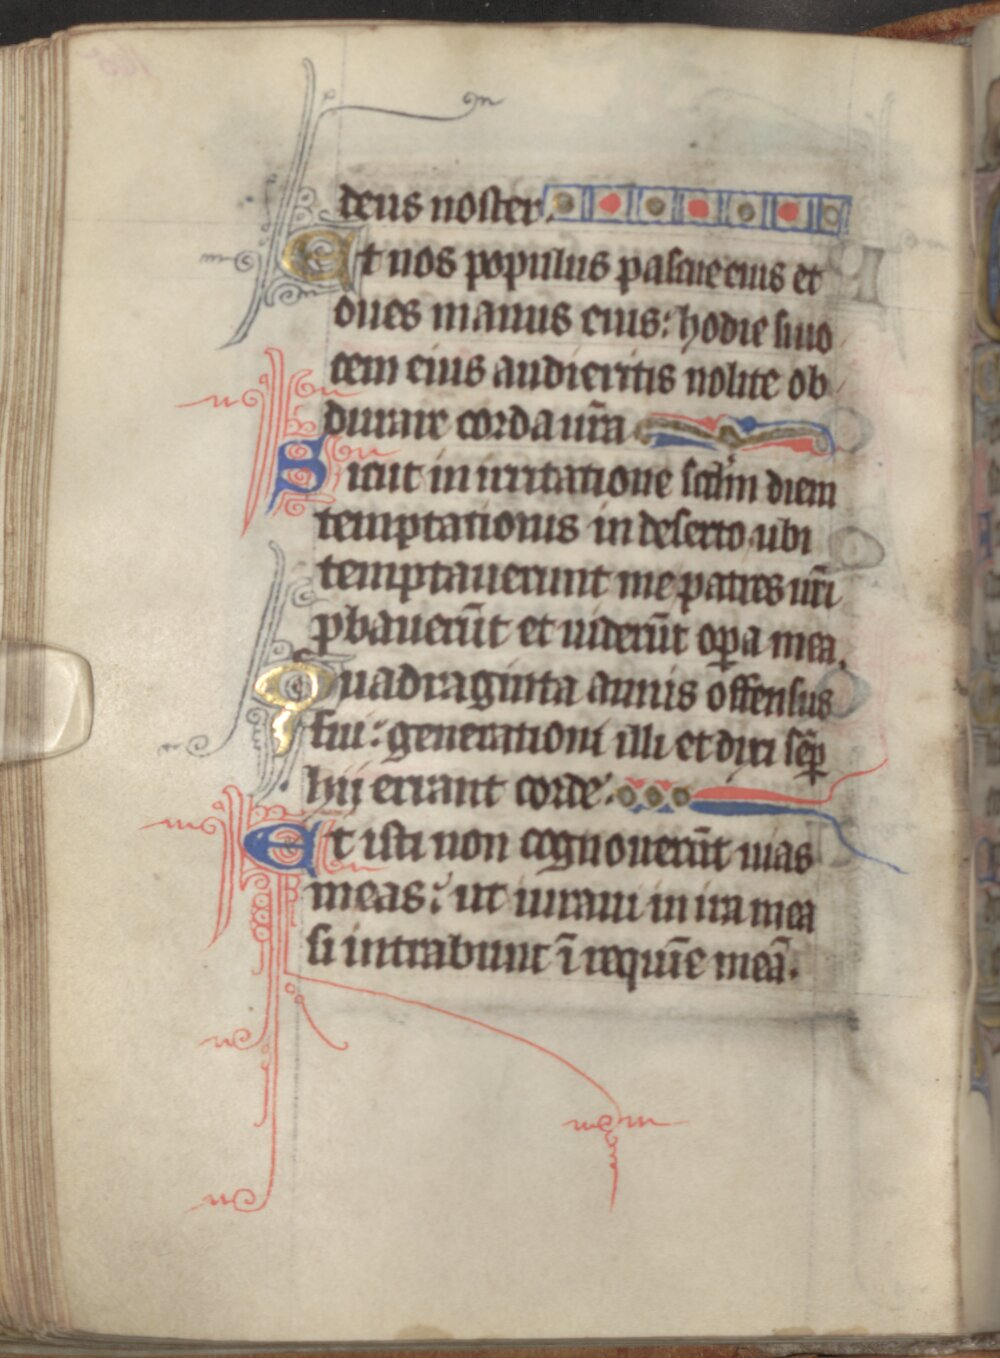 deus noster.
Et nos populus pascue eius et
oues manus eius: hodie si uo
cem eius audieritis nolite ob
durare corda ur̄a
Sicut in irritatione scd̄m diem
temptationis in deserto ubi
temptauerunt me patres ur̄i
ꝓbauerūt et uiderūt oꝑa mea.
Quadraginta annis offensus
fui: generationi illi et dixi sēꝑ
hij errant corde:
Et isti non cognouerūt uias
meas: ut iuraui in ira mea
si intrabunt ī requiē meā.